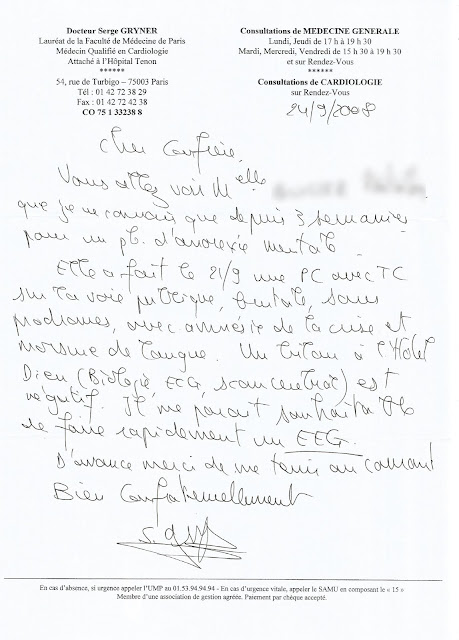 Docteur Serge GRYNER
Lauréat de la Faculté de Médecine de Paris
Médecin Qualifié en Cardiologie
Attaché à l'Hôpital Tenon
******
54, rue de Turbigo – 75003 Paris
Tél : 01 42 72 38 29
Fax : 01 42 72 42 38
CO 75 1 33238 8
Consultations de MEDECINE GENERALE
Lundi, Jeudi de 17 h à 19 h 30
Mardi, Mercredi, Vendredi de 15 h 30 à 19 h 30
et sur Rendez-Vous
******
Consultations de CARDIOLOGIE
sur Rendez-Vous
24/9/2008
Cher Confrère,
Vous allez voir Melle
que je ne connais que depuis 3 semaines
pour un pb. d'anorexie mentale.
Elle a fait le 21/9 une PC avec TC
sur la voie publique, brutale, sans
prodromes, avec amnésie de la crise et
morsure de langue. Un bilan à l'Hotel
Dieu (Biologie ECG, scan cerebral) est
négatif. Il me parait souhaitable
de faire rapidement un EEG.
D'avance merci de me tenir au courant
Bien Confraternellement
En cas d'absence, si urgence appeler l'UMP au 01.53.94.94.94 - En cas d'urgence vitale, appeler le SAMU en composant le « 15 »
Membre d'une association de gestion agréée. Paiement par chèque accepté.